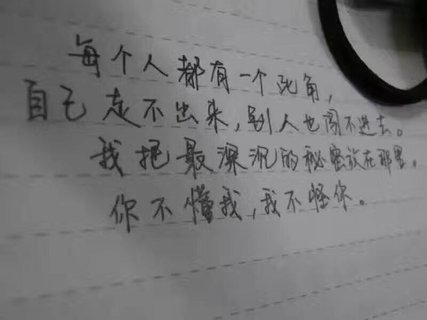 每个人都有一个死角，
自己走不出来，别人也闯不进去。
我把最深沉的秘密放在那里。
你不懂我，我不怪你。